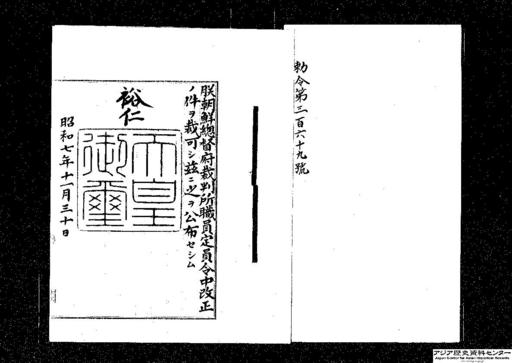 勅令第三百六十九號
朕朝鮮總督府裁判所職員定員令中改正
ノ件ヲ裁可シ茲ニ之ヲ公布セシム
裕仁
天皇御璽
昭和七年十一月三十日
アジア歴史資料センター
Japan Center for Asian Historical Records